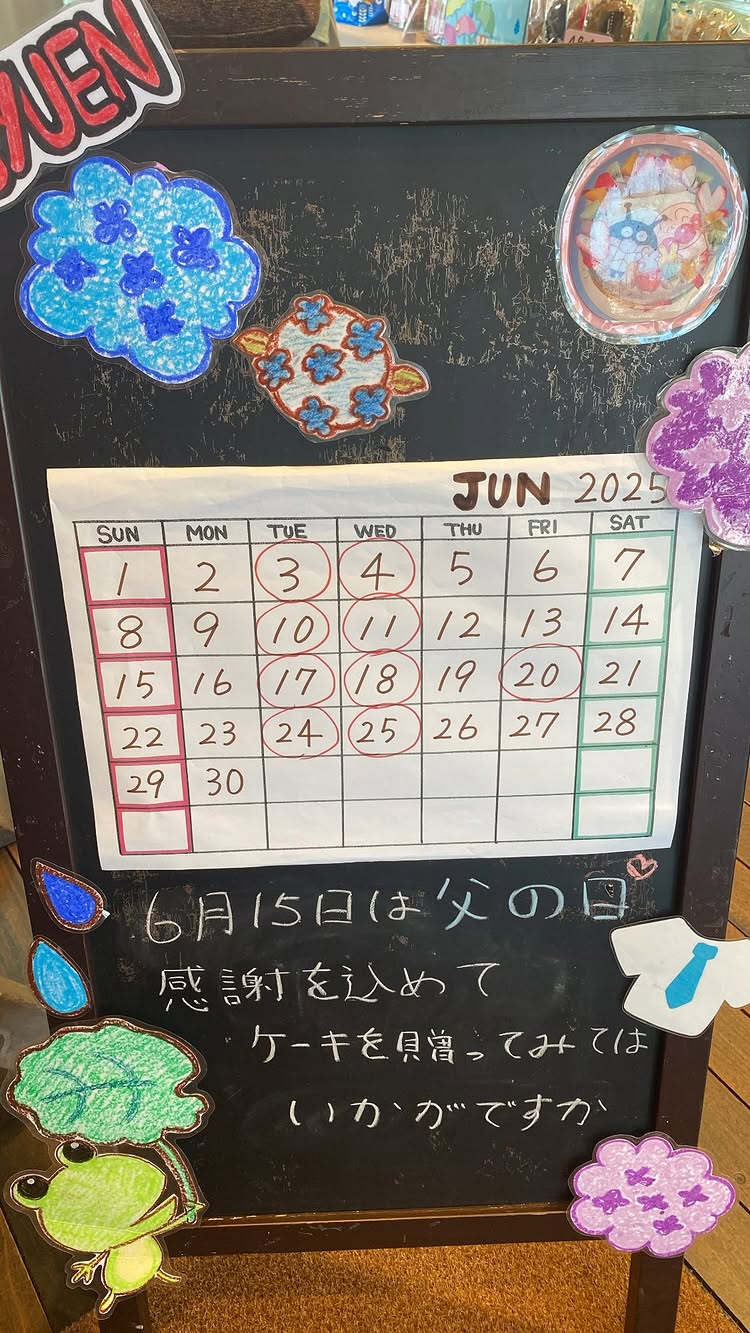 YUEN
JUN 2025
SUN MON TUE WED THU FRI SAT
1 2 3 4 5 6 7
8 9 10 11 12 13 14
15 16 17 18 19 20 21
22 23 24 25 26 27 28
29 30
6月15日は父の日
感謝を込めて
ケーキを贈ってみては
いかがですか